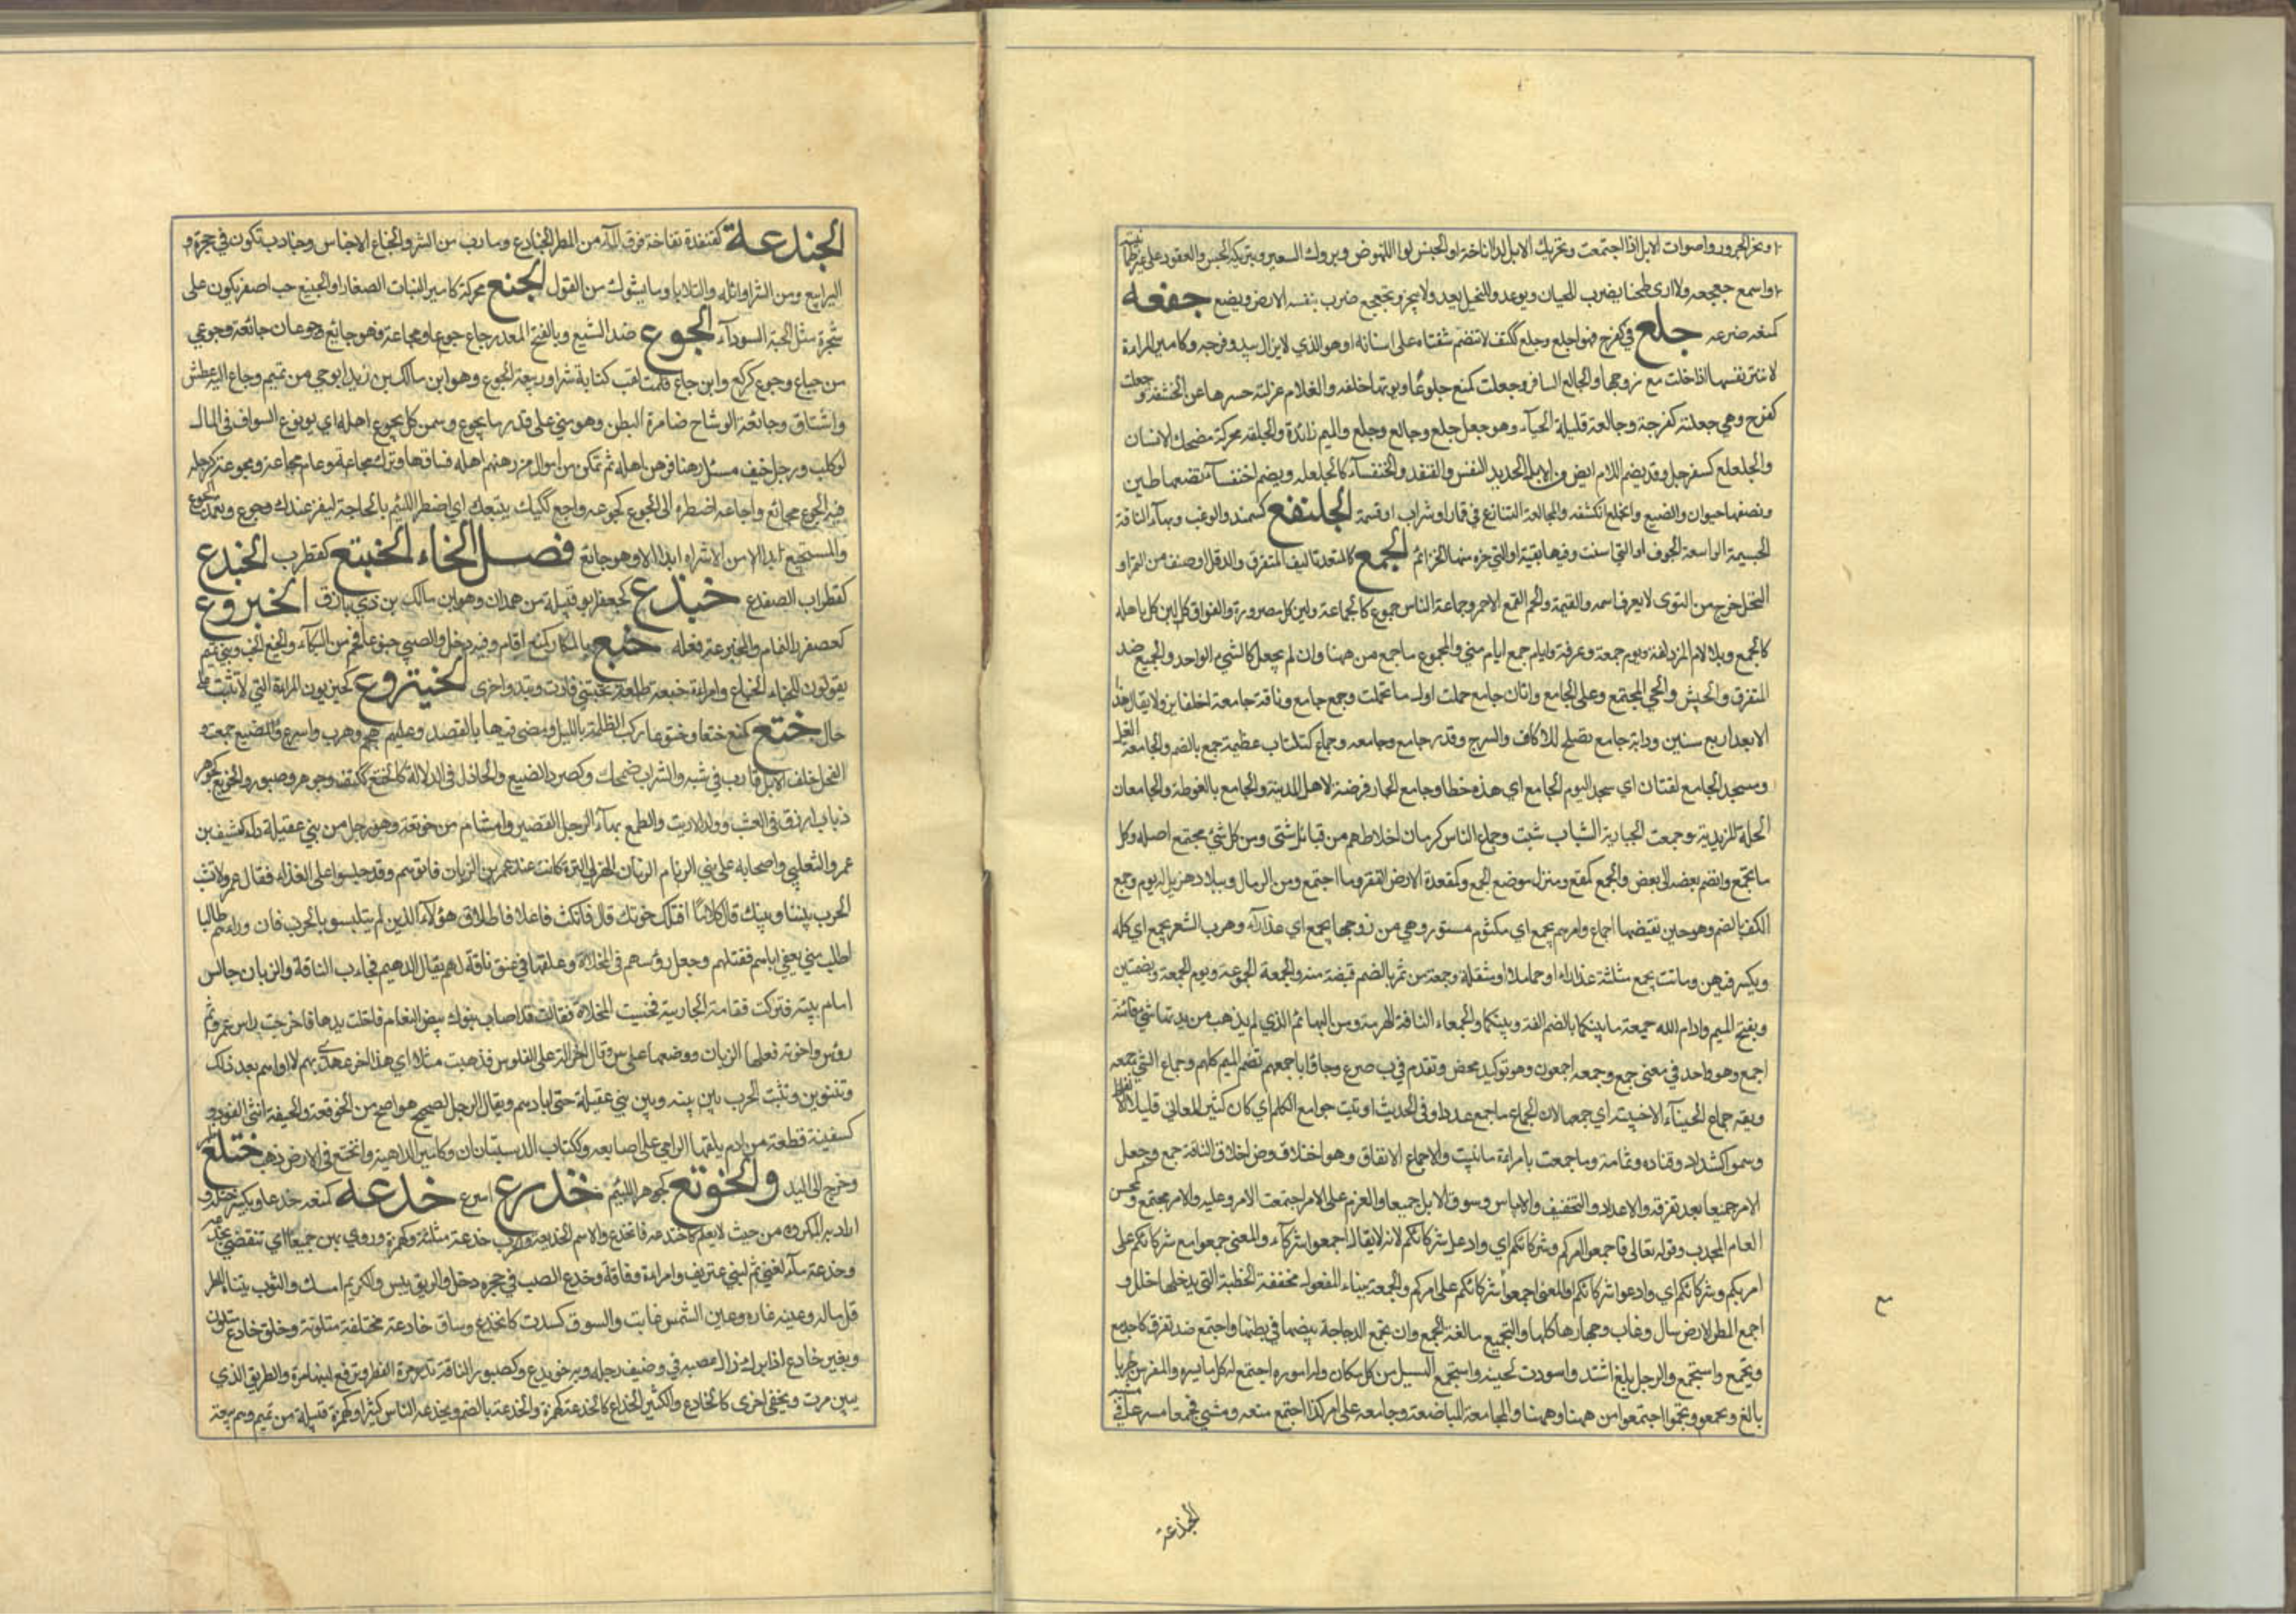 ونحر الجزور واصوات الابل اذا اجتمعت وتحريك الابل للاناخة او الحبس او للنهوض وبروك البعير وتبريكه والحبس والقعود على غير
واسمع جعجعه ولا ارى طحنا يضرب للجبان يوعد ولا يوقع وللبخيل يعد ولا ينجز وتجعجع ضرب بنفسه الارض جفعه
كمنعه صرعه جلع في كفرح فهو اجلع وجلع ككتف لا تنضم شفتاه على اسنانه او هو الذي لا يزال يبدو فرجه وكامير المراءة
لا تستر نفسها اذا خلت مع زوجها والجالع السافر وجعلت كمنع جلوعا وثوبها خلعه والغلام غرلته حسرها عن الحشفة
كفرح وهي جلعة كفرحة وجالعة قليلة الحياء وهو جلع وجالع والميم زائدة والجلعة محركة مضحك الانسان
والجلعلع كسفرجل وقد يضم اللام من الابل الحديد النفس والقنفذ والخنفساء كالجلعلعة ويضم او خنفساء نصفها طين
ونصفها حيوان والضبع وانجلع انكشف والمجالعة التنازع في قمار او شراب او قسمة الجلنفع كسمندر وبهاء الناقة
الجسيمة الواسعة الجوف او التي اسنت وفيها بقية او التي الجمع كالمنع تاليف المتفرق والدقل او صنف من التمر او
النخل خرج من النوى لا يعرف اسمه والقيمة والصمغ الاحمر وجماعة الناس جموع كالجماعة ولبن كل مصرورة والفواق لبن كل باهلة
كالجمع وبلا لام المزدلفة ويوم جمعة وعرفة وايام جمع ايام منى والمجموع ما جمع من ههنا وههنا وان لم يجعل كالشي الواحد والجميع ضد
المتفرق والجيش والحي المجتمع وعلى الجامع واتان جامع حملت اول ما تحمل وجمل جامع وناقة جامعة اخلفا بزولا ولا يقال هذا
الا بعد اربع سنين ودابة جامع تصلح للاكاف والسرج وقدر جامع وجامعه وجماع ككتاب عظيمة ج جمع بالضم والجامعة الغل
ومسجد الجامع لغتان اي مسجد اليوم الجامع اي هذه خطا وجامع الجار فرضة لاهل المدينة والجامع بالغوطة والجامعان
الحلة المزيدية وجمعت الجارية الثياب شبت وجماع الناس كرمان اخلاطهم من قبائل شتى ومن كل شئ مجتمع اصله وكل
ما تجمع وانضم بعضه الى بعض والمجمع كمقعد ومنزل موضع الجمع وكمقعدة الارض القفر وما اجتمع من الرمال وببلاد هذيل له يوم وجمع
الكف بالضم وهو حين تقبضها اجماع وامرهم بجمع اي مكتوم مستور وهي من زوجها بجمع اي عذراء وذهب الشهر بجمع اي كله
ويكسر فيهن وماتت بجمع مثلثة عذراء او حاملا او مثقلة وجمعة من تمر بالضم قبضة منه والجمعة المجموعة ويوم الجمعة وبضمتين
وبفتح الميم وادام الله جمعة ما بينكما بالضم الفة ما بينكما والجمعاء الناقة الهرمة ومن البهائم الذي لم يذهب من بدنها شئ
اجمع وهو واحد في معنى جمع وجمعه اجمعون وهو توكيد محض وتقدم في ب ص ع وجاؤا باجمعهم تضم الميم كلهم وجماع الشئ جمعه
وبقه جماع الخباء الاخبية اي جمعها لان الجماع ما جمع عددا وفي الحديث اوتيت جوامع الكلم اي كان كثير المعاني قليل الالفاظ
وسموا كشداد وقتادة وثمامة وما جمعت بامراءة ما بنيت والاجماع الاتفاق وهو اخلاف الناقة جمع وجعل
الامر جميعا بعد تفرقه والاعداد والتخفيف والايباس وسوق الابل جميعا والعزم على الامر اجمعت الامر وعليه والامر مجتمع وكمحسن
العام المجدب وقوله تعالى فاجمعوا امركم وشركائكم اي وادعوا شركائكم لانه لا يقال اجمعوا شركاء والمعنى اجمعوا مع شركائكم على
امركم وشركائكم اي وادعوا شركائكم او المعنى اجمعوا شركائكم على امركم والمجمعة ببناء المفعول مخففة الخطبة التي لا يدخلها خلل و
اجمع المطر الارض سال رغابها وجهادها كلها والتجميع مبالغة الجمع وان تجمع الدجاجة بيضها في بطنها واجتمع ضد تفرق كاجدمع
وتجمع واستجمع والرجل بلغ اشده واستوت لحيته واستجمع السيل من كل مكان وله اموره اجتمع له كل ما يسره والفرس جريا
بالغ وتجمعوا اجتمعوا من ههنا وههنا والمجامعة المباضعة وجامعه على امر كذا اجتمع معه
مع
الجندعة
الجندعة كقنفذة نفاخة فوق الماء من المطر الجنادع وما دب من الشر والجنادع الاحناش وجنادب تكون في جحرة
اليرابيع ومن الشر اوائله والبلايا وما يسوءك من القول الجنع محركة كامير النبات الصغار او الجنيع حب اصفر يكون على
شجرة مثل الحبة السوداء الجوع ضد الشبع وبالفتح المصدر جاع جوعا ومجاعة فهو جائع وجوعان وهي جائعة وجوعى
من جياع وجوع كركع وابن جاع قملت لقب كتابط شرا وربيعة الجوع هو ابن مالك بن زيد ابو حي من تميم وجاع اليه عطش
واشتاق وجائعة الوشاح ضامرة البطن وهو مني على قدر ما يجوع وسمن كلب بجوع اهله اي بوقوع السواف في المال
او كلب رجل خيف فسئل رهنا فرهن اهله ثم تمكن من اموال من رهنهم اهله فساقها وترك اهله مجاعة وعام مجاعة ومجوعة كمرحلة
فيه الجوع مجائع واجاعه اضطره الى الجوع كجوعه واجع كلبك يتبعك اي اضطر اللئيم بالحاجة ليقر عندك وتجوع تعمد الجوع
والمستجيع ابدا الا وهو جائع فصل الخاء الخبتع كقطرب الخبدع
كقطرب الضفدع خبذع كجعفر ابو قبيلة من همدان وهو ابن مالك بن ذي بارق الخبروع
كعصفور النمام والخبرعة فعله خبع بالمكان كمنع اقام وفيه دخل والصبي خبوعا فحم من البكاء والخبع الخب وبنو تميم
يقولون للخباء الخباع وامراءة خبعة طلعة تختبئ تارة وتبدو اخرى الختروع كحيزبون المراءة التي لا تثبت على
حال ختع كمنع ختعا وختوعا ركب الظلمة بالليل ومضى فيها بالقصد وعليهم هجم وهرب واسرع والضبع خمعت و
الفحل خلف الابل قارب في مشيه والسراب اضمحل وكصرد الضبع والحاذق في الدلالة كالختع ككتف وجوهر وصبور والخوتع كجوهر
ذباب ازرق في العشب وولد الارنب والطمع بهاء الرجل القصير واشام من خوتعة وهو رجل من بني غفيلة دل كثيف بن
عمرو التغلبي واصحابه على بني الزبان الذهلي لترة كانت عند عمرو بن الزبان فاتوهم وقد جلسوا على الغذاء فقال عمرو لا تشب
الحرب بيننا وبينك قال كلا فان ورائهم طالبا
اطلب مني يعني اباهم فقتلهم وجعل رؤسهم في المخلاة وعلقها في عنق ناقة لهم يقال الدهيم فجاءت الناقة والزبان جالس
امام بيته فبركت فقامت الجارية فجست المخلاة فقالت قد اصاب بنوك بيض النعام فادخلت يدها فاخرجت راس عمرو ثم
رؤس اخوته فغسلها الزبان ووضعها على ترس وقال اخر البز على القلوص فذهبت مثلا اي هذا اخر عهدي بهم لا اراهم بعد ذلك
وشبت الحرب بين بينه وبين بني غفيلة حتى ابادهم ويقال للرجل الصحيح هو اصح من الخوتعة والختيعة انثى النمور و
كسفينة قطعة من ادم يلفها الرامي على اصابعه وككتاب الدستبانان وكامير الداهية وانختع في الارض ذهب ختلع
وخرج الى البدو والخوتع كجوهر اللئيم خذرع اسرع خدعه كمنعه خدعا ويكسر ختله و
اراد به المكروه من حيث لا يعلم كاختدعه فانخدع والاسم الخديعة والحرب خدعة مثلثة وكهمزة وروي بهن جميعا اي تنقضي بخدعة
وخدعة ماء لغني ثم لبني عتريف وامراءة وناقة وخدع الضب في جحره دخل والريق يبس والكريم امسك والثوب ثناه والمطر
قل ماله وعينه غارت وعين الشمس غابت والسوق كسدت كانخدع وسوق خادعة مختلفة متلونة وخلق خادع متلون
وبعير خادع اذا برك زال عصبه في وظيف رجله وبه خويدع وكصبور الناقة تدر مرة القطر وترفع لبنها مرة والطريق الذي
يبين مرة ويخفى اخرى كالخادع والكثير الخداع كالخدعة كهمزة والخدعة بالضم من يخدعه الناس كثيرا وكهمزة قبيلة من تميم وهم ربيعة